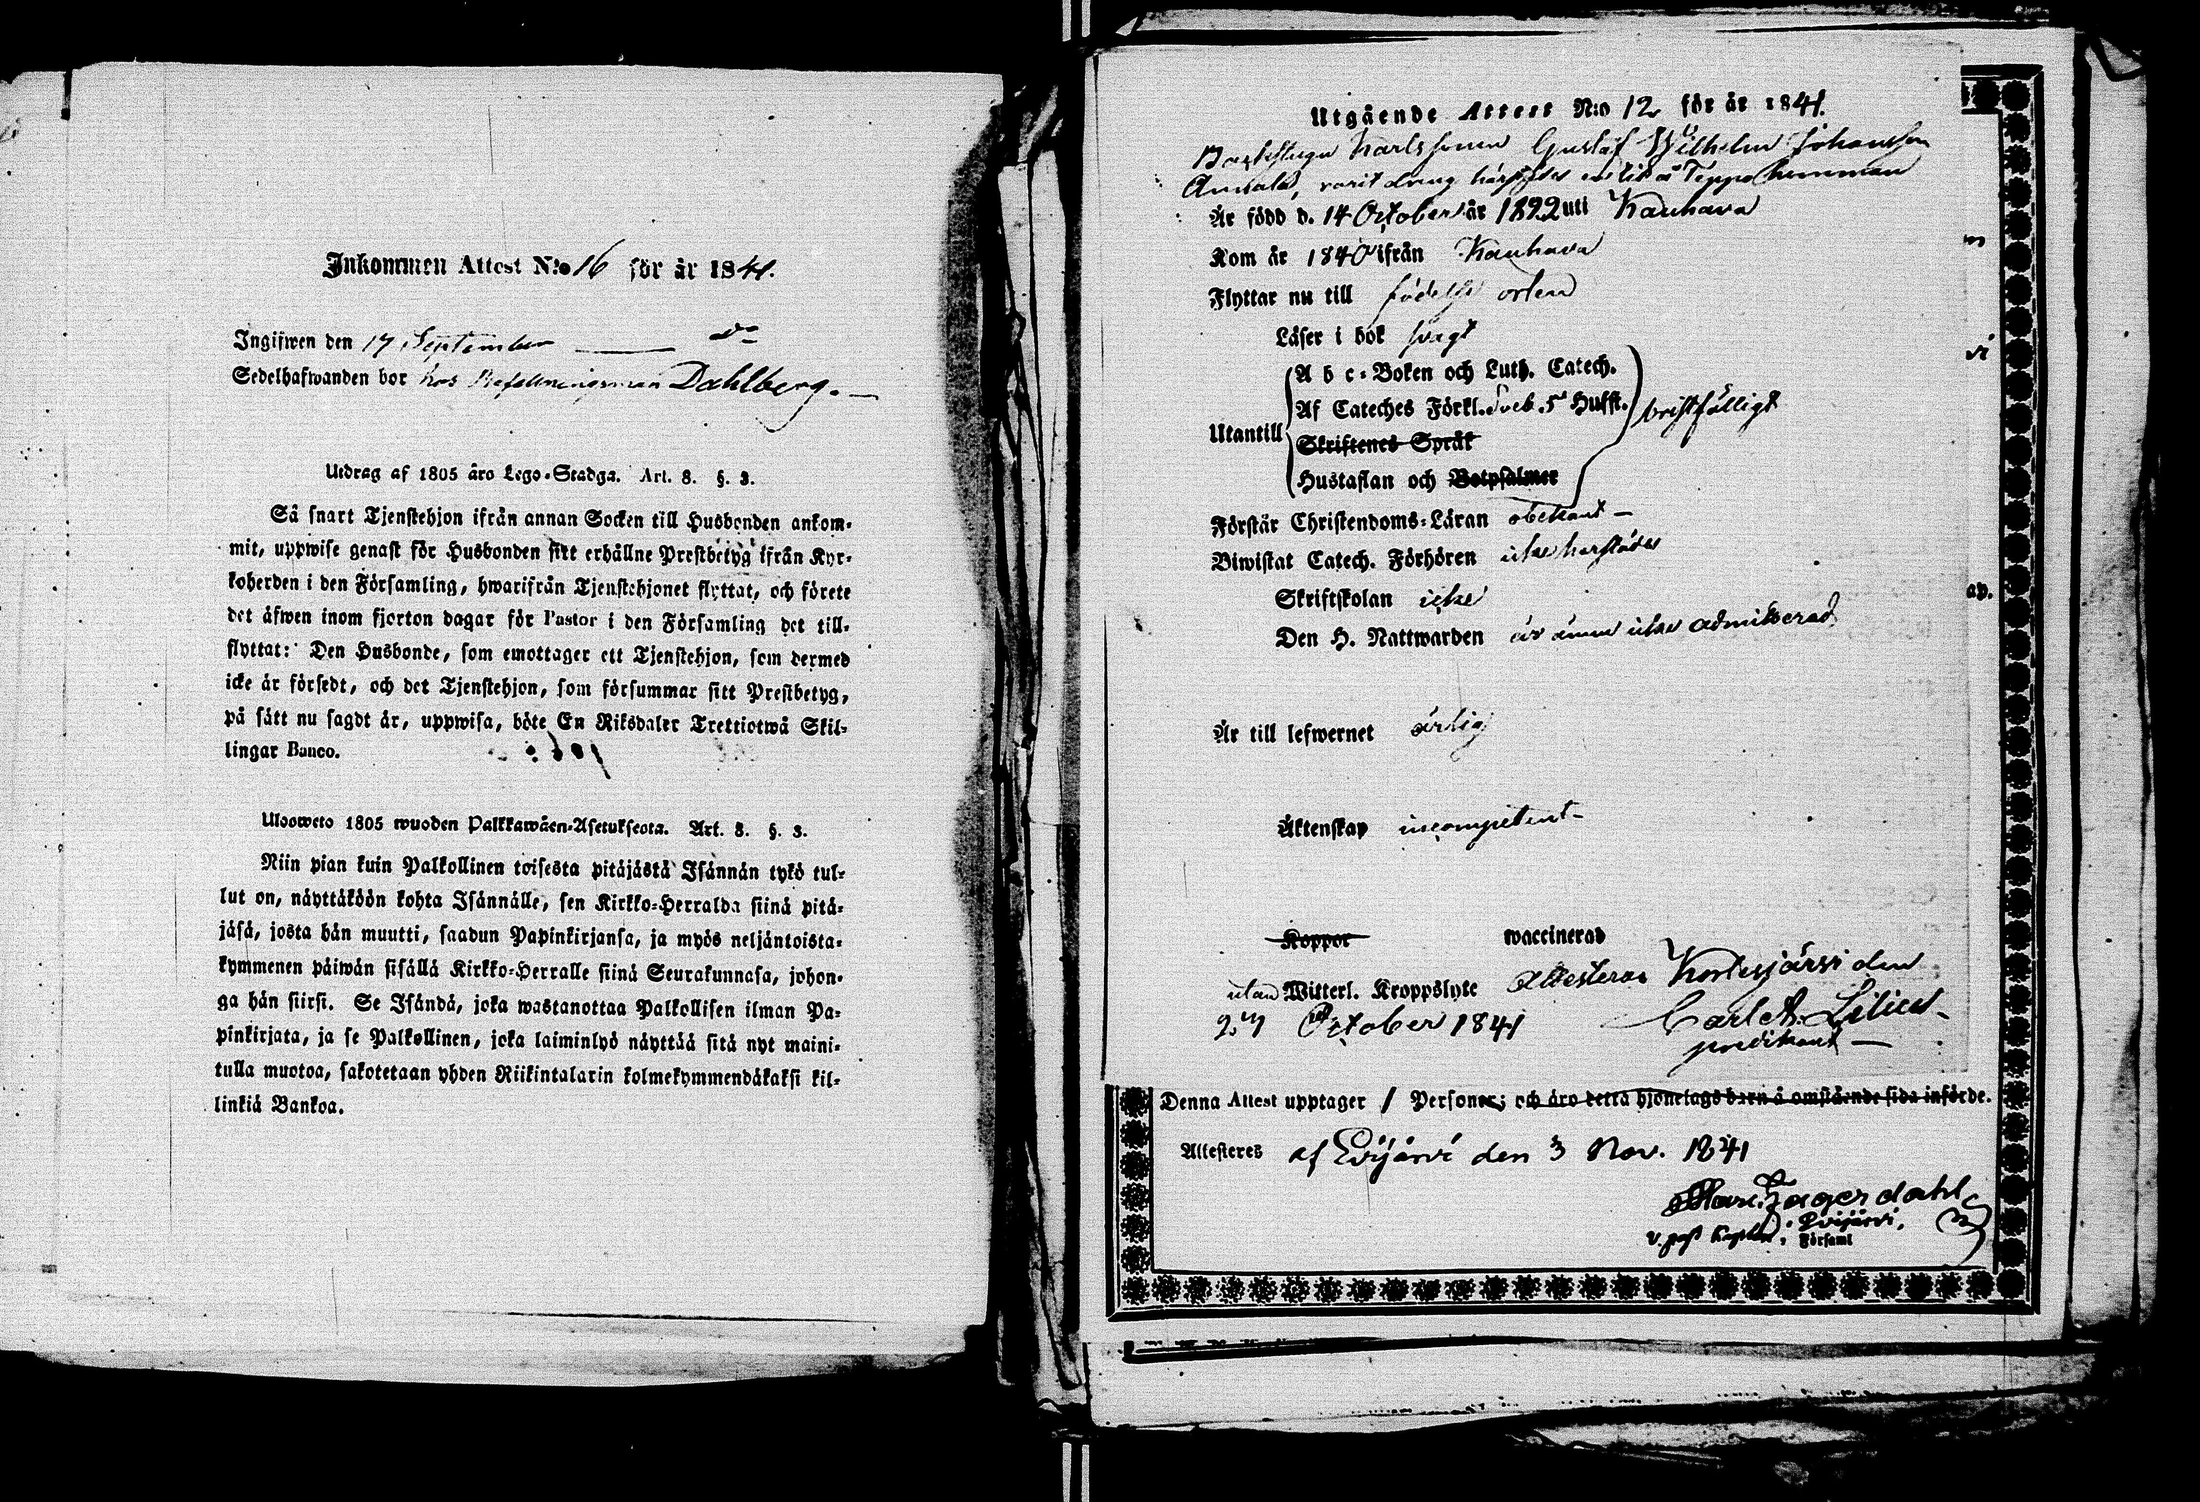 Inkommen Attest N:o 16 för år 1841.
Ingifwen den 17 September
Sedelhafwanden bor hos Dahlberg.
Utdrag af 1805 års Lego-Stadga. Art. 8. §. 3.
Så snart Tjenstehjon ifrån annan Socken till Husbonden ankom-
mit, uppwise genast för Husbonden sitt erhållne Prestbetyg ifrån Kyr-
koherden i den Församling, hwarifrån Tjenstehjonet flyttat, och förete
det äfwen inom fjorton dagar för Pastor i den Församling det till-
flyttat: Den Husbonde, som emottager ett Tjenstehjon, som dermed
icke är försedt, och det Tjenstehjon, som försummar sitt Prestbetyg,
på sätt nu sagdt är, uppwisa, böte En Riksdaler Trettiotwå Skil-
lingar Banco.
Ulosweto 1805 wuoden Palkkawäen-Asetuksesta. Art. 8. §. 3.
Niin pian kuin Palkollinen toisesta pitäjästä Isännän tykö tul-
lut on, näyttäköön kohta Isännälle, sen Kirkko-Herralda siinä pitä-
jäsä, josta hän muutti, saadun Papinkirjansa, ja myös neljäntoista-
kymmenen päiwän sisällä Kirkko-Herralle siinä Seurakunnasa, johon-
ga hän siirsi. Se Isändä, joka wastanottaa Palkollisen ilman Pa-
pinkirjata, ja se Palkollinen, joka laiminlyö näyttää sitä nyt maini-
tulla muotoa, sakotetaan yhden Riikintalarin kolmekymmendäkaksi kil-
linkiä Bankoa.
Utgående Attest N:o 12 för år 1841.
Karlssonen Gustaf Wilhelm Johansson
varit dreng härstädes Teppo hemman
Är född d. 14 October år 1822 uti Kauhava
Kom år 1840 ifrån Kauhava
Flyttar nu till födelse orten
Läser i bok svagt
Utantill
A b c-Boken och Luth. Catech.
Af Cateches Förkl. Sveb. 5 Hufst.
bristfälligt
Skriftenes Språk
Hustaflan och Botpsalmer
Förstår Christendoms-Läran obekant
Biwistat Catech. Förhören icke härstädes
Skriftskolan icke
Den H. Nattwarden är ännu icke admitterad
Är till lefwernet ärlig
Äktenskap incompetent
Koppor waccinerad
utan Witterl. Kroppslyte Attesteras Kortesjärvi den
27 October 1841 Carl A. Lilius
predikant
Denna Attest upptager 1 Personer; och äro detta hjonelags barn å omstående sida införde.
Attesteres af Evijärvi den 3 Nov. 1841
Lagerdahl
v. past Evijärvi,
Församl